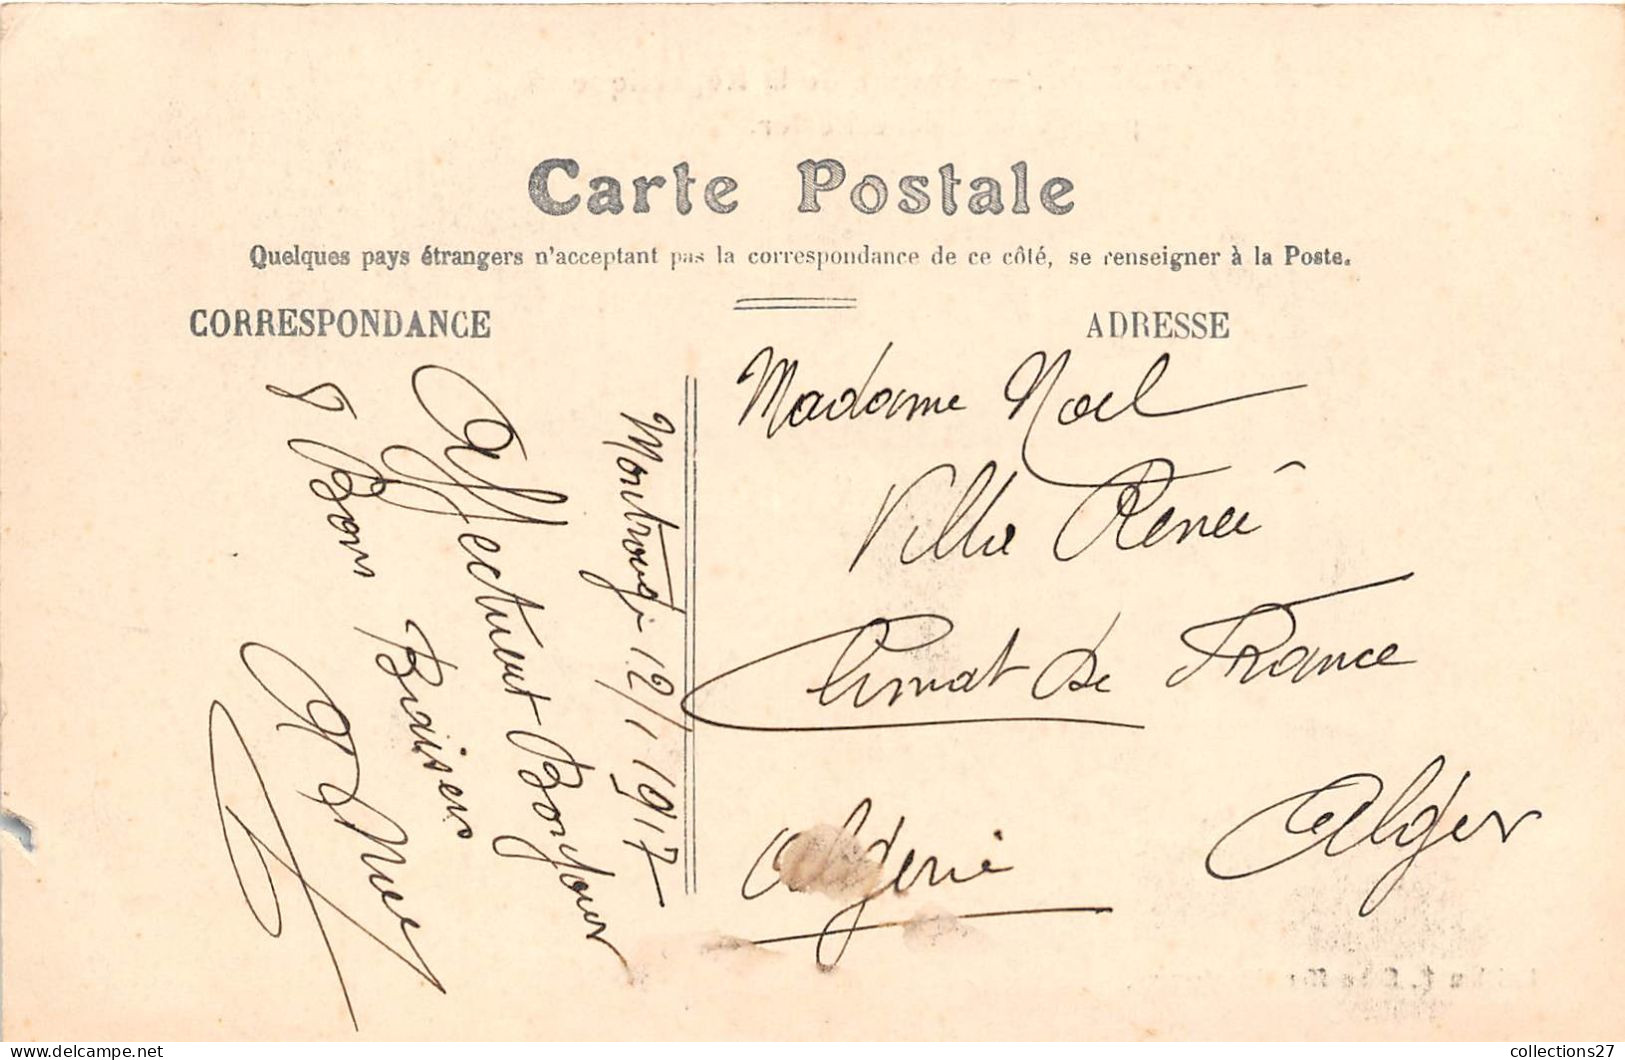 Carte Postale
Quelques pays étrangers n'acceptant pas la correspondance de ce côté, se renseigner à la Poste.
CORRESPONDANCE
ADRESSE
Montrouge 12/1 1917
Affectueux Bonjour
& Bons Baisers
Madame Noel
Villa Renée
Climat de France
Alger
Algerie
collections27